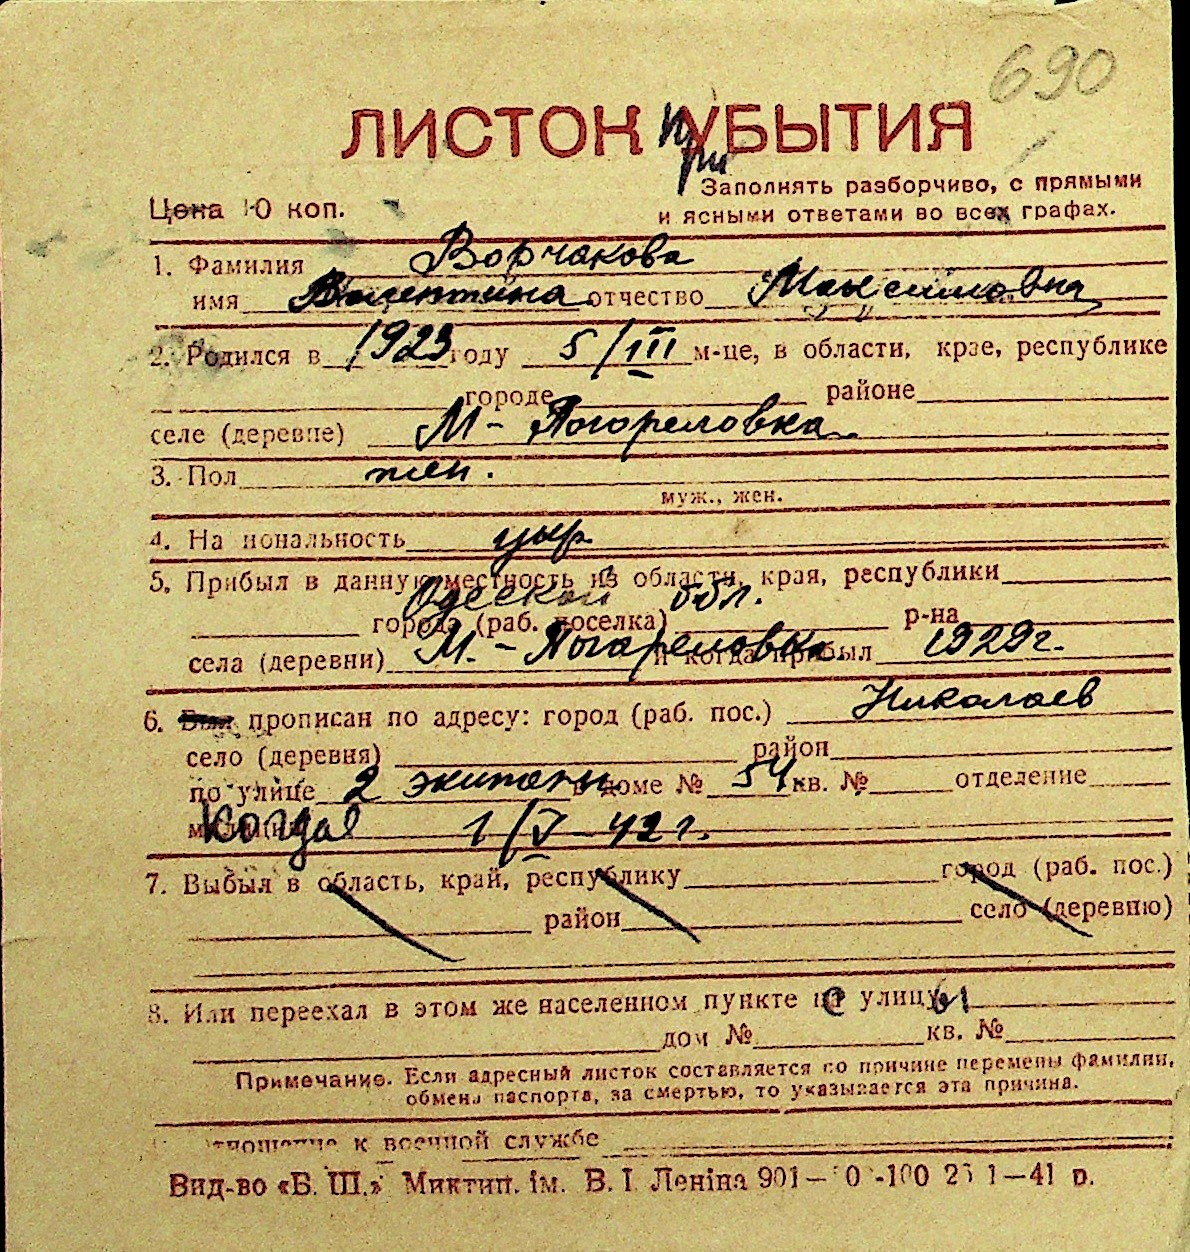 690
ЛИСТОК при УБЫТИЯ
Заполнять разборчиво, с прямыми
Цена 10 коп. и ясными ответами во всех графах.
1. Фамилия Ворчакова
имя Валентина отчество Максимовна
2. Родился в 1923 году 5/III м-це, в области, крае, республике
городе районе
селе (деревне) М-Погореловка
3. Пол жен.
муж., жен.
4. Национальность укр
5. Прибыл в данную местность из области, края, республики
Одеской обл.
города (раб. поселка) р-на
села (деревни) М.-Погореловка и когда прибыл 1929г.
6. Был прописан по адресу: город (раб. пос.) Николаев
село (деревня) район
по улице 2 экипажн в доме № 54 кв. № отделение
милиции Когда 1/V-42 г.
7. Выбыл в область, край, республику город (раб. пос.)
район село (деревню)
8. Или переехал в этом же населенном пункте с улицы
дом № кв. №
Примечание. Если адресный листок составляется по причине перемены фамилии,
обмена паспорта, за смертью, то указывается эта причина.
отношение к военной службе
Вид-во «Б. Ш.» Миктип. ім. В. І Леніна 901— 0 -100 2 1—41 р.